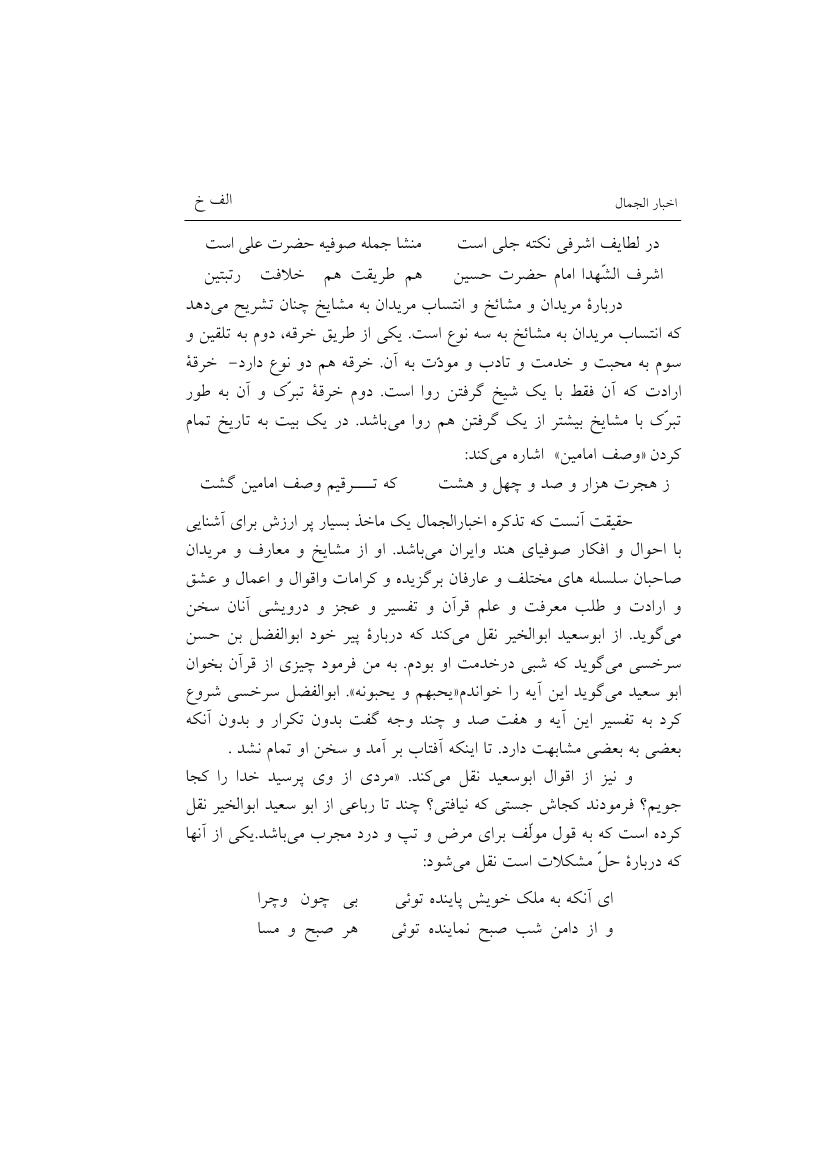 اخبار الجمال الف خ
در لطایف اشرفی نکته جلی است منشا جمله صوفیه حضرت علی است
اشرف الشّهدا امام حضرت حسین هم طریقت هم خلافت رتبتین
دربارهٔ مریدان و مشائخ و انتساب مریدان به مشایخ چنان تشریح می‌دهد
که انتساب مریدان به مشائخ به سه نوع است. یکی از طریق خرقه، دوم به تلقین و
سوم به محبت و خدمت و تادب و مودّت به آن. خرقه هم دو نوع دارد- خرقهٔ
ارادت که آن فقط با یک شیخ گرفتن روا است. دوم خرقهٔ تبرّک و آن به طور
تبرّک با مشایخ بیشتر از یک گرفتن هم روا می‌باشد. در یک بیت به تاریخ تمام
کردن «وصف امامین» اشاره می‌کند:
ز هجرت هزار و صد و چهل و هشت که تـــرقیم وصف امامین گشت
حقیقت آنست که تذکره اخبارالجمال یک ماخذ بسیار پر ارزش برای آشنایی
با احوال و افکار صوفیای هند وایران می‌باشد. او از مشایخ و معارف و مریدان
صاحبان سلسله های مختلف و عارفان برگزیده و کرامات واقوال و اعمال و عشق
و ارادت و طلب معرفت و علم قرآن و تفسیر و عجز و درویشی آنان سخن
می‌گوید. از ابوسعید ابوالخیر نقل می‌کند که دربارهٔ پیر خود ابوالفضل بن حسن
سرخسی می‌گوید که شبی درخدمت او بودم. به من فرمود چیزی از قرآن بخوان
ابو سعید می‌گوید این آیه را خواندم«یحبهم و یحبونه». ابوالفضل سرخسی شروع
کرد به تفسیر این آیه و هفت صد و چند وجه گفت بدون تکرار و بدون آنکه
بعضی به بعضی مشابهت دارد. تا اینکه آفتاب بر آمد و سخن او تمام نشد .
و نیز از اقوال ابوسعید نقل می‌کند. «مردی از وی پرسید خدا را کجا
جویم؟ فرمودند کجاش جستی که نیافتی؟ چند تا رباعی از ابو سعید ابوالخیر نقل
کرده است که به قول مولّف برای مرض و تپ و درد مجرب می‌باشد.یکی از آنها
که دربارهٔ حلّ مشکلات است نقل می‌شود:
ای آنکه به ملک خویش پاینده توئی بی چون وچرا
و از دامن شب صبح نماینده توئی هر صبح و مسا